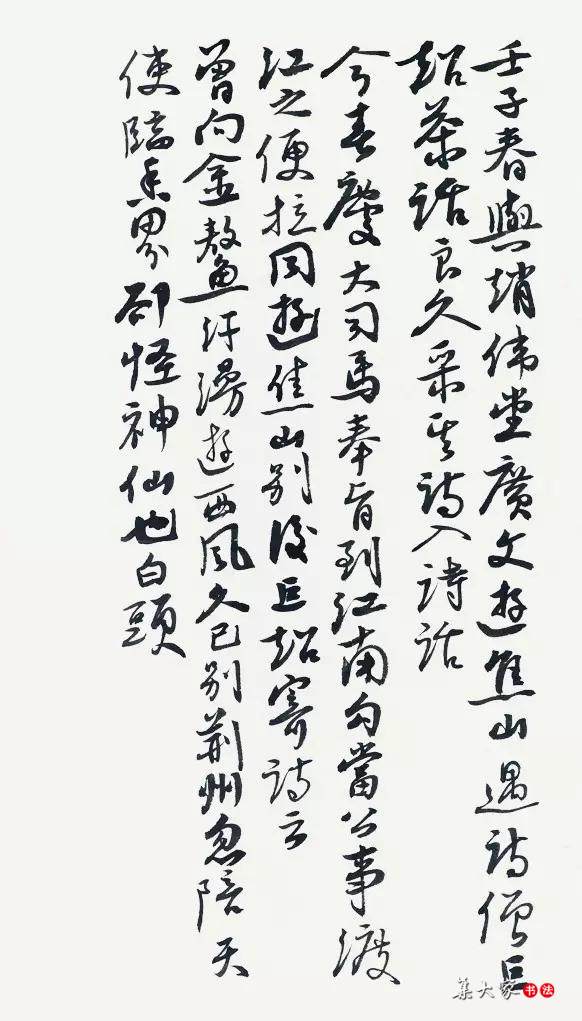 壬子春與趙偉堂廣文遊焦山遇詩僧巨
超茶話良久采其詩入詩話
今春慶大司馬奉旨到江南勾當公事渡
江之便拉同遊焦山別後巨超寄詩云
曾向金鰲汗漫遊西風久已別荊州忽陪天
使臨香界卻怪神仙也白頭
集大家書法